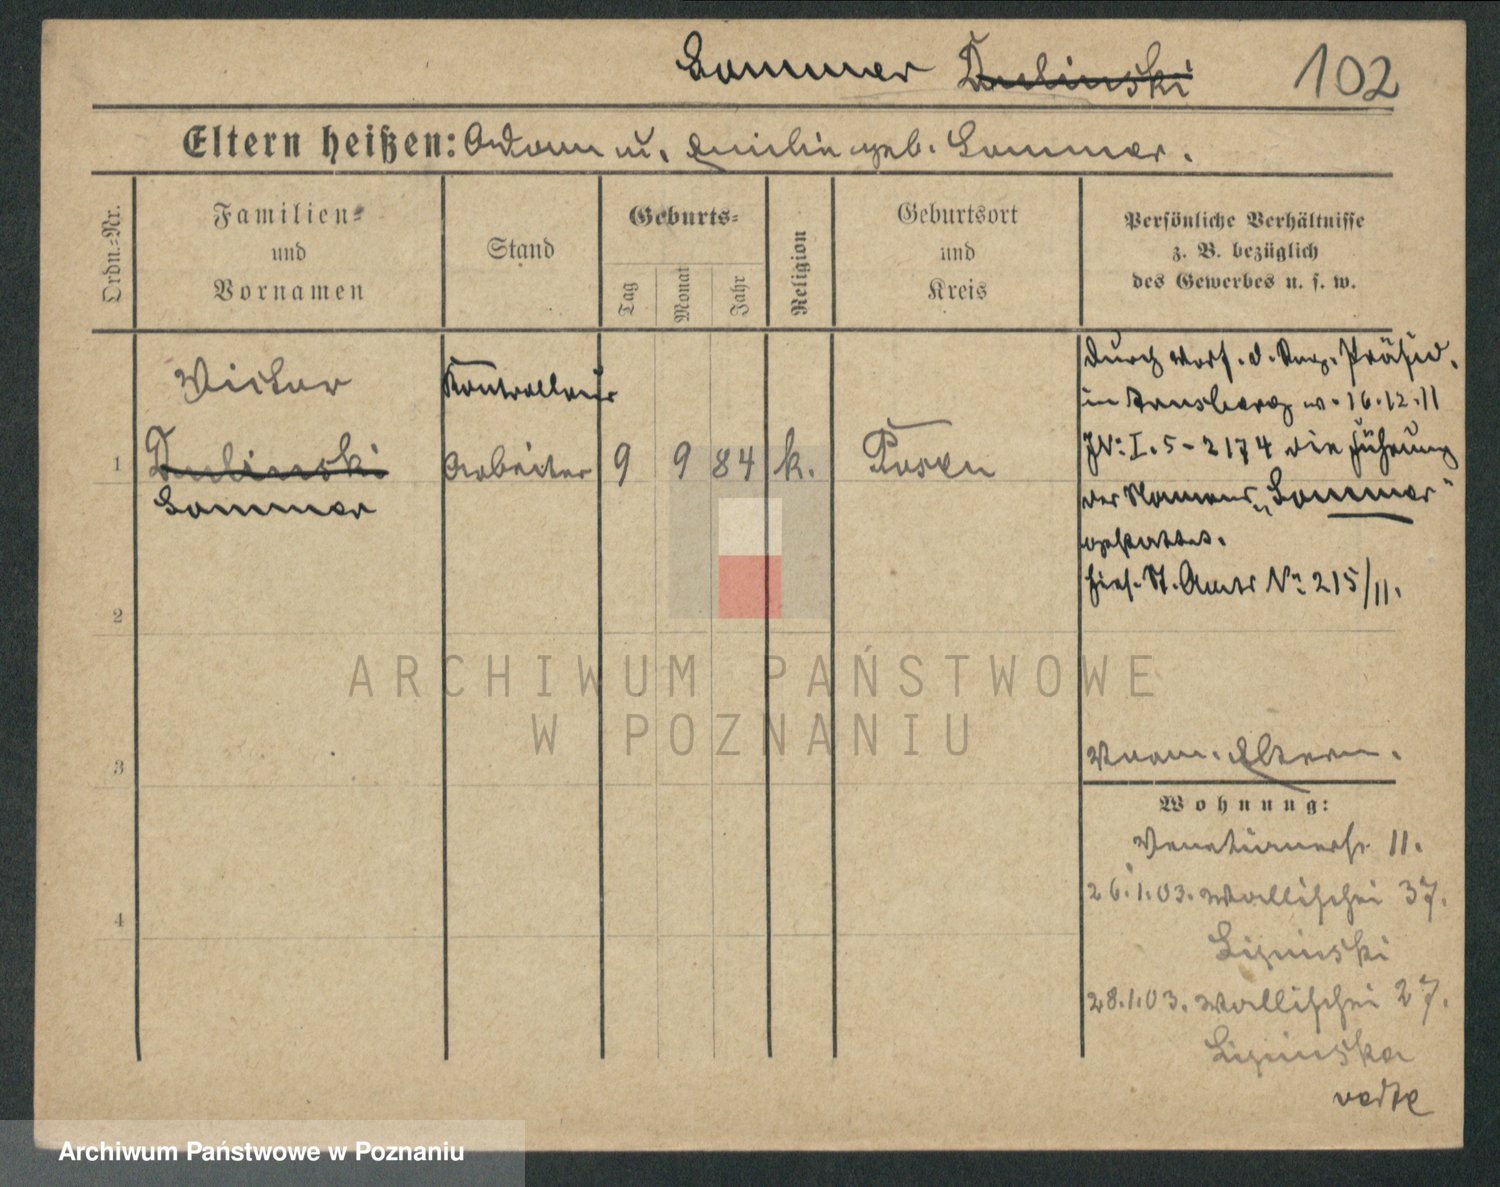 Sommer Dulinski 102
Eltern heißen: Adam u. Emilie geb. Sommer.
Ordn.-Nr.
Familien-
und
Vornamen
Stand
Geburts-
Tag
Monat
Jahr
Religion
Geburtsort
und
Kreis
Persönliche Verhältnisse
z. B. bezüglich
des Gewerbes u. s. w.
Victor
Kontrolleur
1 Dulinski Arbeiter 9 9 84 k. Posen
Sommer
2
3
4
durch Verf. d. Reg. Präsid.
in Arnsberg v. 16.12.11
JN: I. 5 - 2174 die Führung
des Namens „Sommer"
gestattet.
hies. St. Amts No 215/11.
Eltern.
Wohnung:
Venetianerstr. 11.
26.1.03. Wallischei 37.
Lipinski
28.1.03. Wallischei 27.
Lipinska
ARCHIWUM PAŃSTWOWE
W POZNANIU
Archiwum Państwowe w Poznaniu